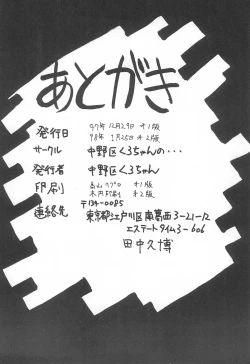 あとがき
発行日 97年12月29日 オ1版
98年1月25日 オ2版
サークル 中野区くろちゃんの・・・
発行者 中野区くろちゃん
印刷 オ1版
オ2版
連絡先 〒134-0085
東京都江戸川区南葛西3-21-12
エステートタイム3-606
田中久博